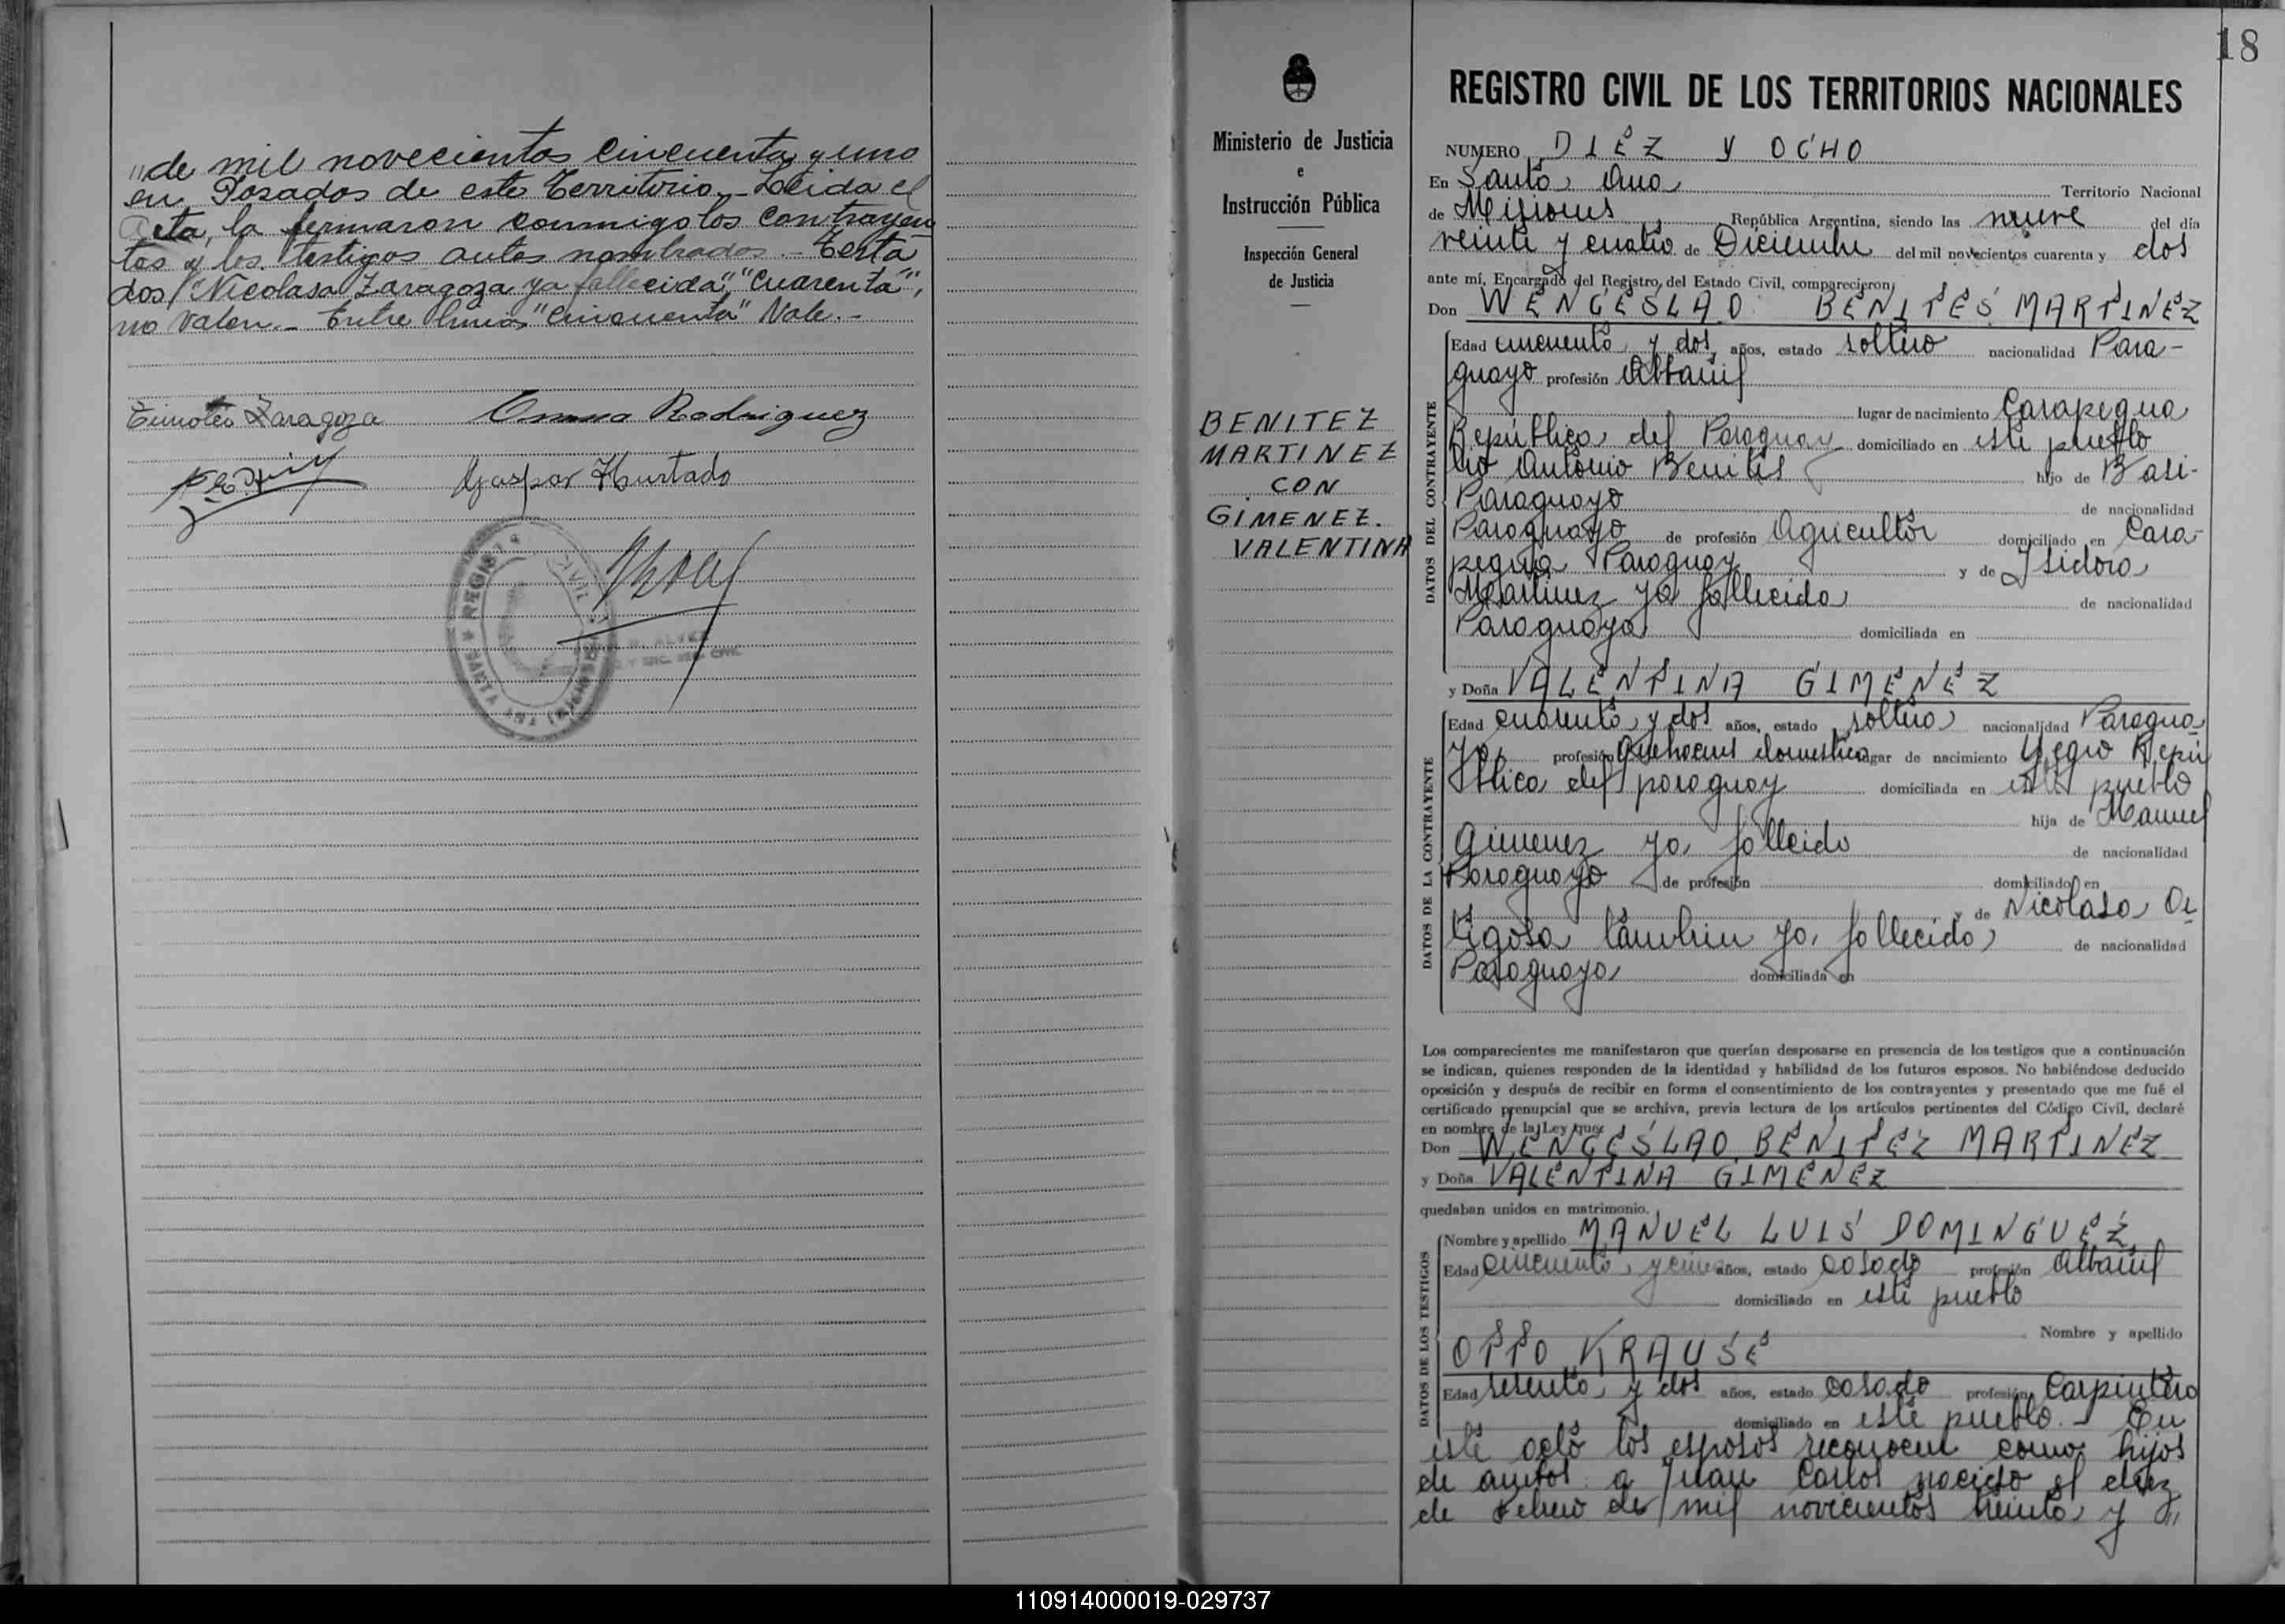 "de mil novecientos cincuenta y uno
en Posadas de este Territorio.- Leida el
acta, la firmaron conmigo los contrayen
tes y los testigos antes nombrados.- Testa
dos/"Nicolasa Zaragoza ya fallecida", "cuarenta",
no valen.- Entre lineas "cincuenta" Vale.-
Timoteo Zaragoza
Rodriguez
Gaspar Hurtado
REGISTRO CIVIL
SANTA ANA (MISIONES)
18
Ministerio de Justicia
e
Instrucción Pública
Inspección General
de Justicia
BENITEZ
MARTINEZ
CON
GIMENEZ.
VALENTINA
REGISTRO CIVIL DE LOS TERRITORIOS NACIONALES
NUMERO DIEZ Y OCHO
En Santa Ana Territorio Nacional
de Misiones, República Argentina, siendo las nueve del día
veinte y cuatro de Diciembre del mil novecientos cuarenta y dos
ante mí, Encargado del Registro del Estado Civil, comparecieron:
Don WENCESLAO BENITES MARTINEZ
Edad cincuenta y dos años, estado soltero nacionalidad Para-
guayo profesión Albañil
lugar de nacimiento Carapegua
República del Paraguay domiciliado en este pueblo
hijo de Basi-
lio Antonio Benites
Paraguayo de nacionalidad
Paraguayo de profesión Agricultor domiciliado en Cara-
pegua Paraguay y de Isidora
Martinez ya fallecida de nacionalidad
Paraguaya domiciliada en
DATOS DEL CONTRAYENTE
y Doña VALENTINA GIMENEZ
Edad cuarenta y dos años, estado soltera nacionalidad Paragua
ya profesión quehaceres domestica lugar de nacimiento Yegro Repú
blica del paraguay domiciliada en este pueblo
hija de Manuel
Gimenez ya fallecido de nacionalidad
Paraguayo de profesión domiciliado en
y de Nicolasa Or
tigosa tambien ya fallecida de nacionalidad
Paraguaya domiciliada en
DATOS DE LA CONTRAYENTE
Los comparecientes me manifestaron que querían desposarse en presencia de los testigos que a continuación
se indican, quienes responden de la identidad y habilidad de los futuros esposos. No habiéndose deducido
oposición y después de recibir en forma el consentimiento de los contrayentes y presentado que me fué el
certificado prenupcial que se archiva, previa lectura de los artículos pertinentes del Código Civil, declaré
en nombre de la Ley que:
Don WENCESLAO BENITEZ MARTINEZ
y Doña VALENTINA GIMENEZ
quedaban unidos en matrimonio.
Nombre y apellido MANUEL LUIS DOMINGUEZ
Edad cincuenta y años, estado casado profesión Albañil
domiciliado en este pueblo
Nombre y apellido
OTTO KRAUSE
Edad sesenta y dos años, estado casado profesión Carpintero
domiciliado en este pueblo.- En
DATOS DE LOS TESTIGOS
este acto los esposos reconocen como hijos
de ambos a Juan Carlos nacido el diez
de Febrero de mil novecientos treinta y
110914000019-029737